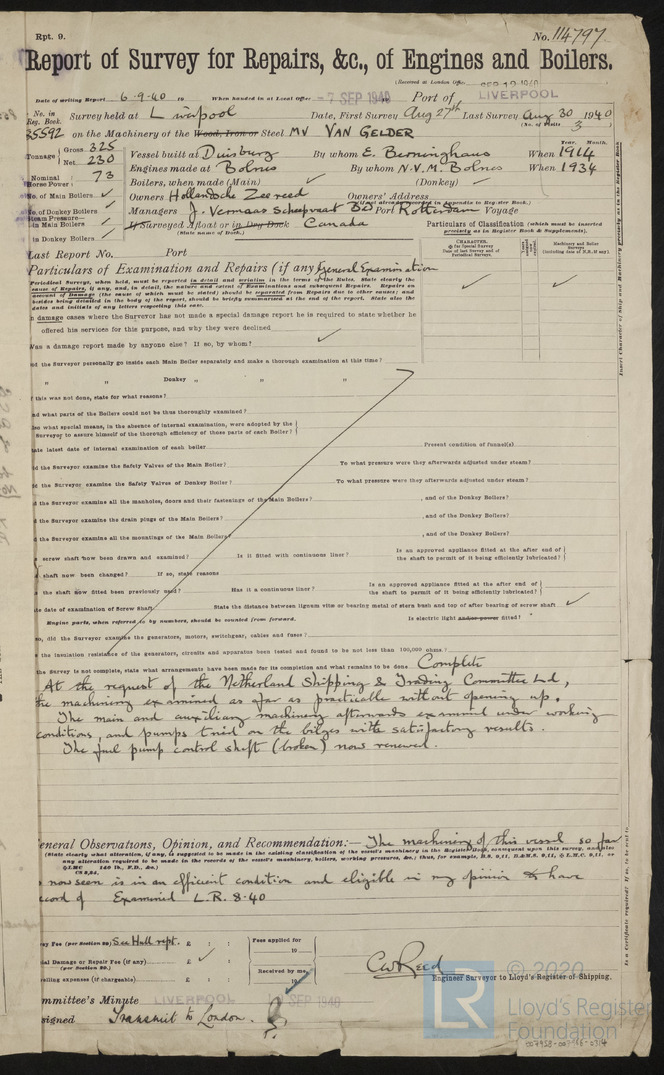 Rpt. 9.
No. 114797
Report of Survey for Repairs, &c., of Engines and Boilers.
(Received at London Office
Date of writing Report 6-9-40 19 When handed in at Local Office -7 SEP 1940 Port of LIVERPOOL
No. in Reg. Book. Survey held at Liverpool Date, First Survey Aug 27th Last Survey Aug 30 1940
(No. of Visits 3
35592 on the Machinery of the Wood, Iron or Steel MV VAN GELDER
Tonnage Gross 325
Net 230
Vessel built at Duisburg By whom E. Berninghaus When 1914
Year. Month.
Engines made at Bolnes By whom N.V.M. Bolnes When 1934
Nominal Horse Power 73
Boilers, when made (Main) ✓ (Donkey) ✓
No. of Main Boilers ✓ Owners Hollandsche Zeereed Owners' Address
(if not already recorded in Appendix to Register Book.)
No. of Donkey Boilers ✓ Managers J. Vermaas Scheepvaart Bd Port Rotterdam Voyage
Steam Pressure—
in Main Boilers ✓ If Surveyed Afloat or in Dry Dock Canada
(State name of Dock.)
in Donkey Boilers ✓
Particulars of Classification (which must be inserted precisely as in Register Book & Supplements).
Last Report No. Port
CHARACTER.
Machinery and Boiler Surveys
Particulars of Examination and Repairs (if any) General Examination
Periodical Surveys, when held, must be reported in detail and seriatim in the terms of the Rules. State clearly the
cause of Repairs, if any, and, in detail, the nature and extent of Examinations and subsequent Repairs. Repairs on
account of Damage (the cause of which must be stated) should be separated from Repairs due to other causes; and
besides being detailed in the body of the report, should be briefly summarised at the end of the report. State also the
dates and initials of any letters respecting this case.
n damage cases where the Surveyor has not made a special damage report he is required to state whether he
offered his services for this purpose, and why they were declined
Was a damage report made by anyone else? If so, by whom? ✓
id the Surveyor personally go inside each Main Boiler separately and make a thorough examination at this time?
" " Donkey " " "
f this was not done, state for what reasons?
nd what parts of the Boilers could not be thus thoroughly examined?
so what special means, in the absence of internal examination, were adopted by the
Surveyor to assure himself of the thorough efficiency of those parts of each Boiler?
ate latest date of internal examination of each boiler Present condition of funnel(s)
id the Surveyor examine the Safety Valves of the Main Boiler? To what pressure were they afterwards adjusted under steam?
id the Surveyor examine the Safety Valves of Donkey Boiler? To what pressure were they afterwards adjusted under steam?
d the Surveyor examine all the manholes, doors and their fastenings of the Main Boilers? , and of the Donkey Boilers?
d the Surveyor examine the drain plugs of the Main Boilers? , and of the Donkey Boilers?
d the Surveyor examine all the mountings of the Main Boilers? , and of the Donkey Boilers?
s screw shaft now been drawn and examined? Is it fitted with continuous liner? Is an approved appliance fitted at the after end of
the shaft to permit of it being efficiently lubricated?
s shaft now been changed? If so, state reasons
s the shaft now fitted been previously used? Has it a continuous liner? Is an approved appliance fitted at the after end of
the shaft to permit of it being efficiently lubricated?
te date of examination of Screw Shaft State the distance between lignum vitæ or bearing metal of stern bush and top of after bearing of screw shaft ✓
Engine parts, when referred to by numbers, should be counted from forward. Is electric light and/or power fitted?
so, did the Surveyor examine the generators, motors, switchgear, cables and fuses?
s the insulation resistance of the generators, circuits and apparatus been tested and found to be not less than 100,000 ohms?
the Survey is not complete, state what arrangements have been made for its completion and what remains to be done Complete
At the request of the Netherland Shipping & Trading Committee Ltd,
the machinery examined as far as practicable without opening up.
The main and auxiliary machinery afterwards examined under working
conditions, and pumps tried on the bilges with satisfactory results.
The fuel pump control shaft (broken) now renewed.
eneral Observations, Opinion, and Recommendation:— The machinery of this vessel so far
(State clearly what alteration, if any, is suggested to be made in the existing classification of the vessel's machinery in the Register Book, consequent upon this survey, and also
any alteration required to be made in the records of the vessel's machinery, boilers, working pressures, &c.; thus, for example, B.S. 9,11, B.&M.S. 9,11, & L.M.C. 9,11, or
& LMC 140 lb., F.D., &c.)
CS 9,34,
s now seen is in an efficient condition and eligible in my opinion to have
ecord of Examined L.R. 8.40
ey Fee (per Section 29) See Hull rept. £ : :
ial Damage or Repair Fee (if any) £ ✓ :
(per Section 29.)
velling expenses (if chargeable). £ : :
Fees applied for
19
Received by me,
19
CW Reed
Engineer Surveyor to Lloyd's Register of Shipping.
mmittee's Minute LIVERPOOL SEP 1940
signed Transmit to London.
Insert Character of Ship and Machinery precisely as in the Register Book
Is a Certificate required?
© 2020
LR
Lloyd's Register
Foundation
007958-007966-0314